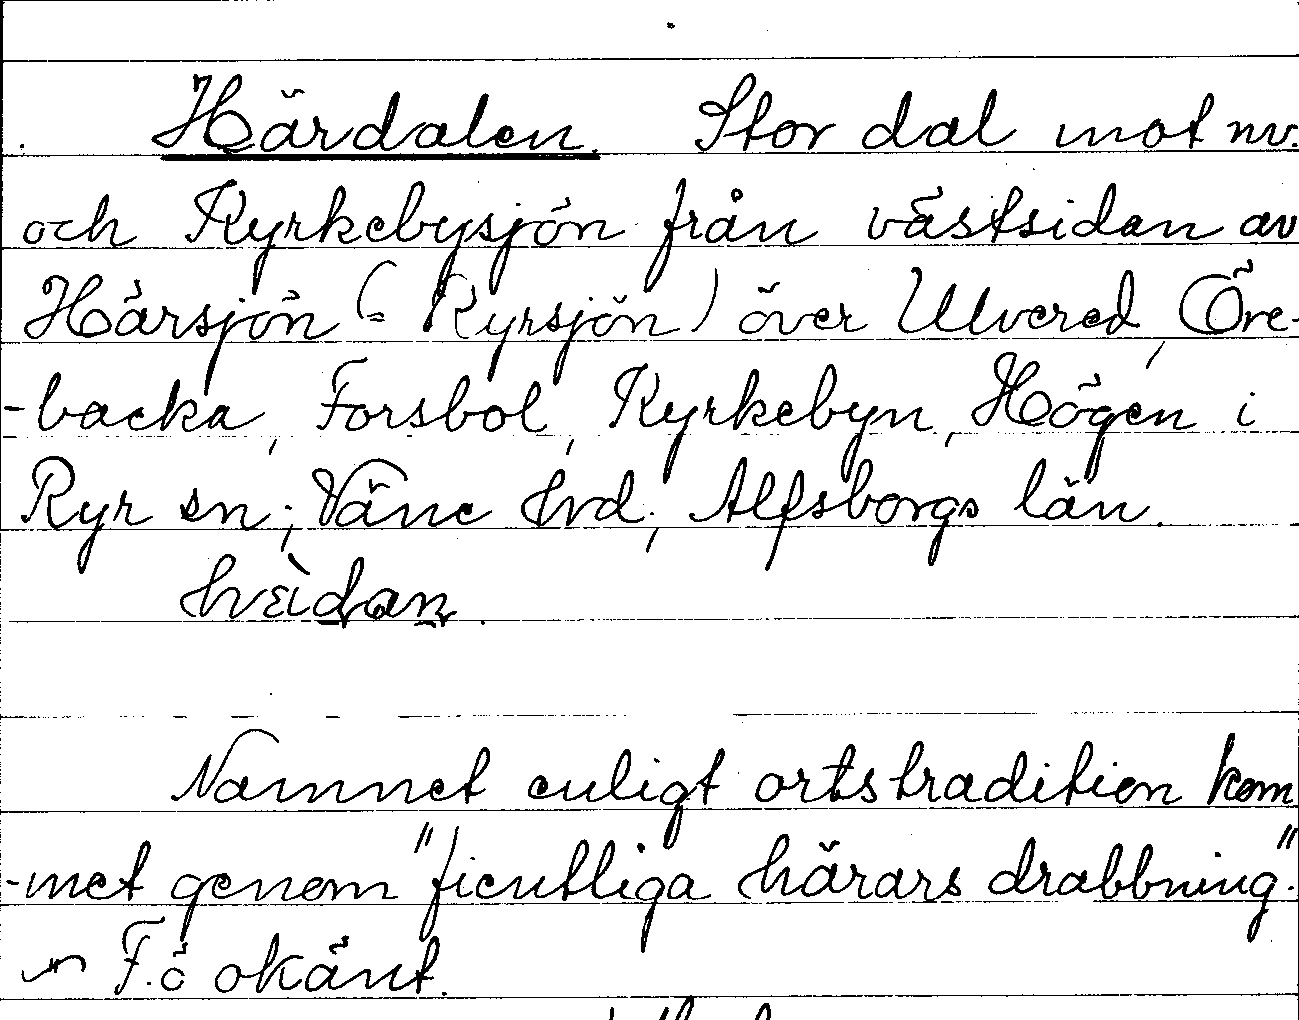 Härdalen. Stor dal mot nv.
och Kyrkebysjön från västsidan av
Härsjön (= Ryrsjön) över Ulvered, Öre-
-backa, Forsbol, Kyrkebyn, Högen i
Ryr sn; Väne hrd; Alfsborgs län.
Namnet enligt ortstradition kom
-met genom "fientliga härars drabbning".
F.ö okänt.